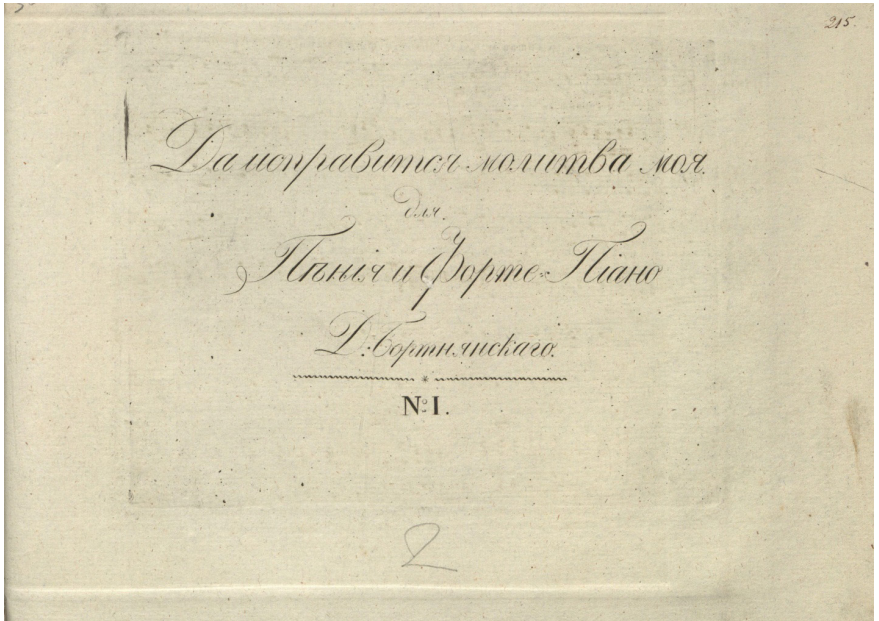 215.
Да исправится молитва моя.
для
Пѣнія и Форте-Піано
Д. Бортнянскаго.
№ I.
2